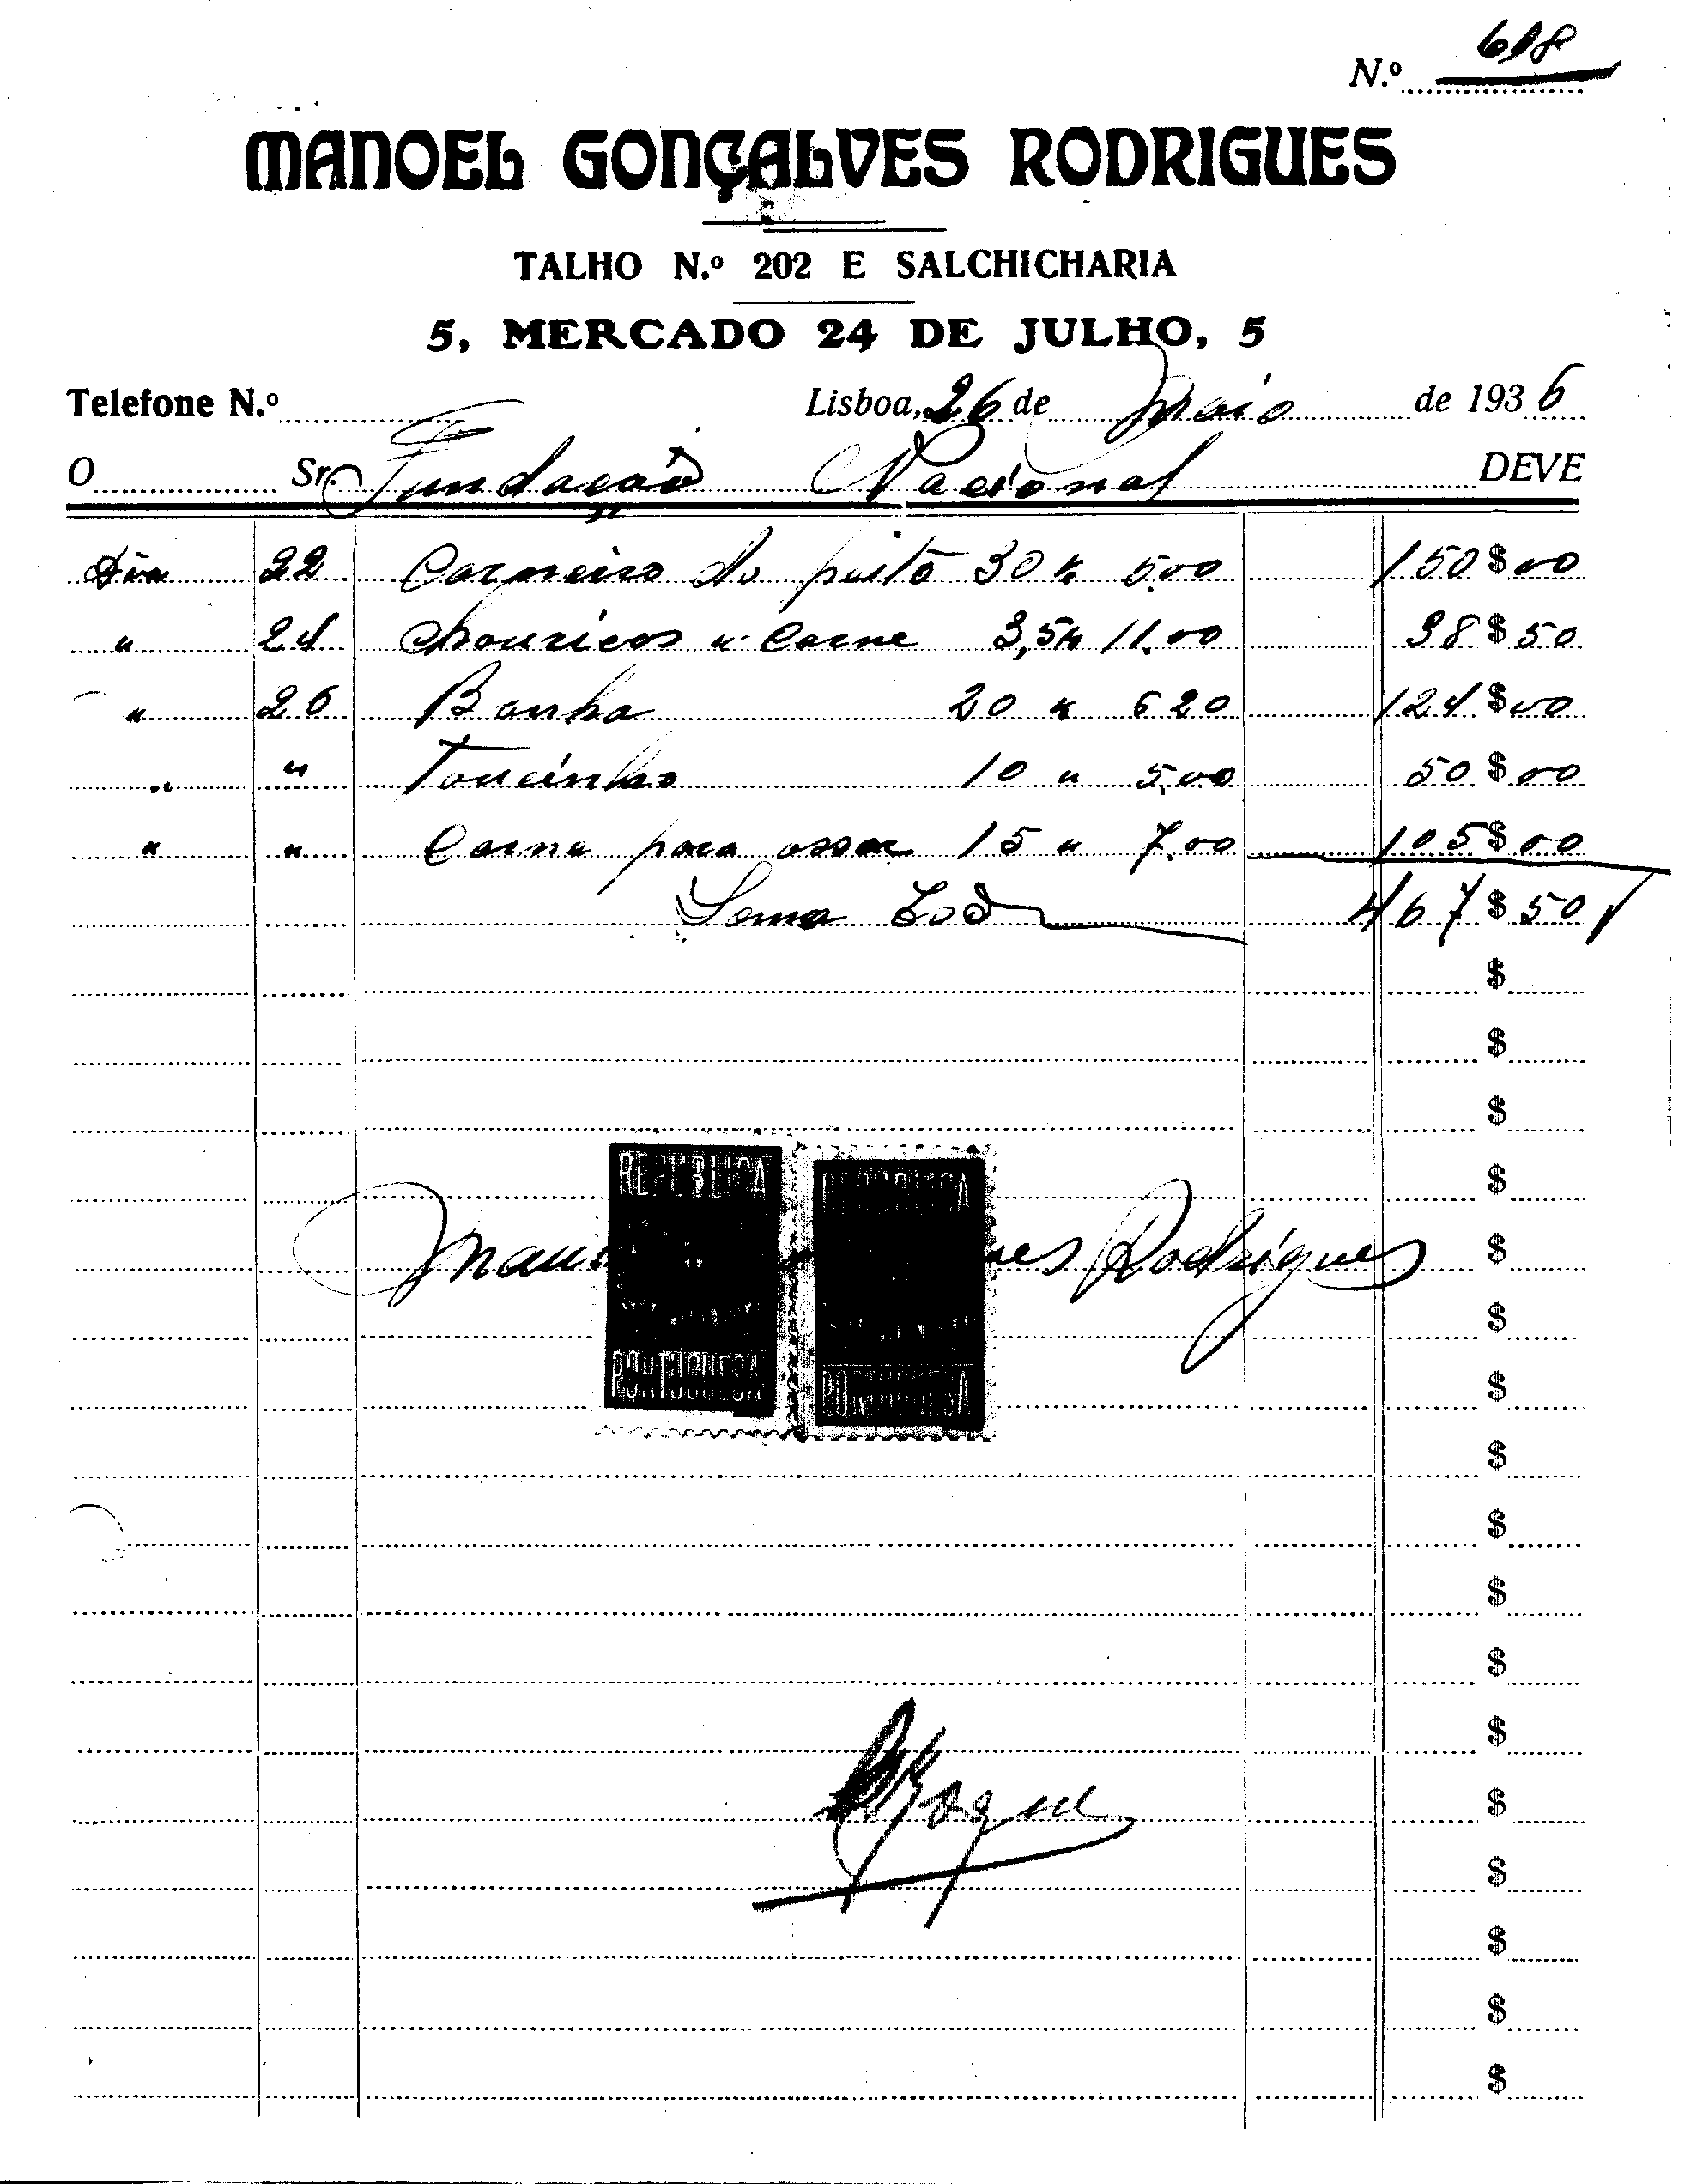 N.º 618
MANOEL GONÇALVES RODRIGUES
TALHO N.º 202 E SALCHICHARIA
5, MERCADO 24 DE JULHO, 5
Telefone N.º Lisboa, 26 de Maio de 1936
O Sr. Fundação Nacional DEVE
Dia 22 Carneiro do peito 30 k 5.00 150$00
" 24 Chouriços " Carne 3,5k 11.00 38$50
" 26 Banha 20 k 6 20 124$00
" " Toucinho 10 " 5,00 50$00
" " Carne para assar 15 " 7.00 105$00
Soma 467$50
$
$
$
$
REPUBLICA REPUBLICA
Rodrigues $
$
PORTUGUESA PORTUGUESA $
$
$
$
$
$
$
$
$
$
$